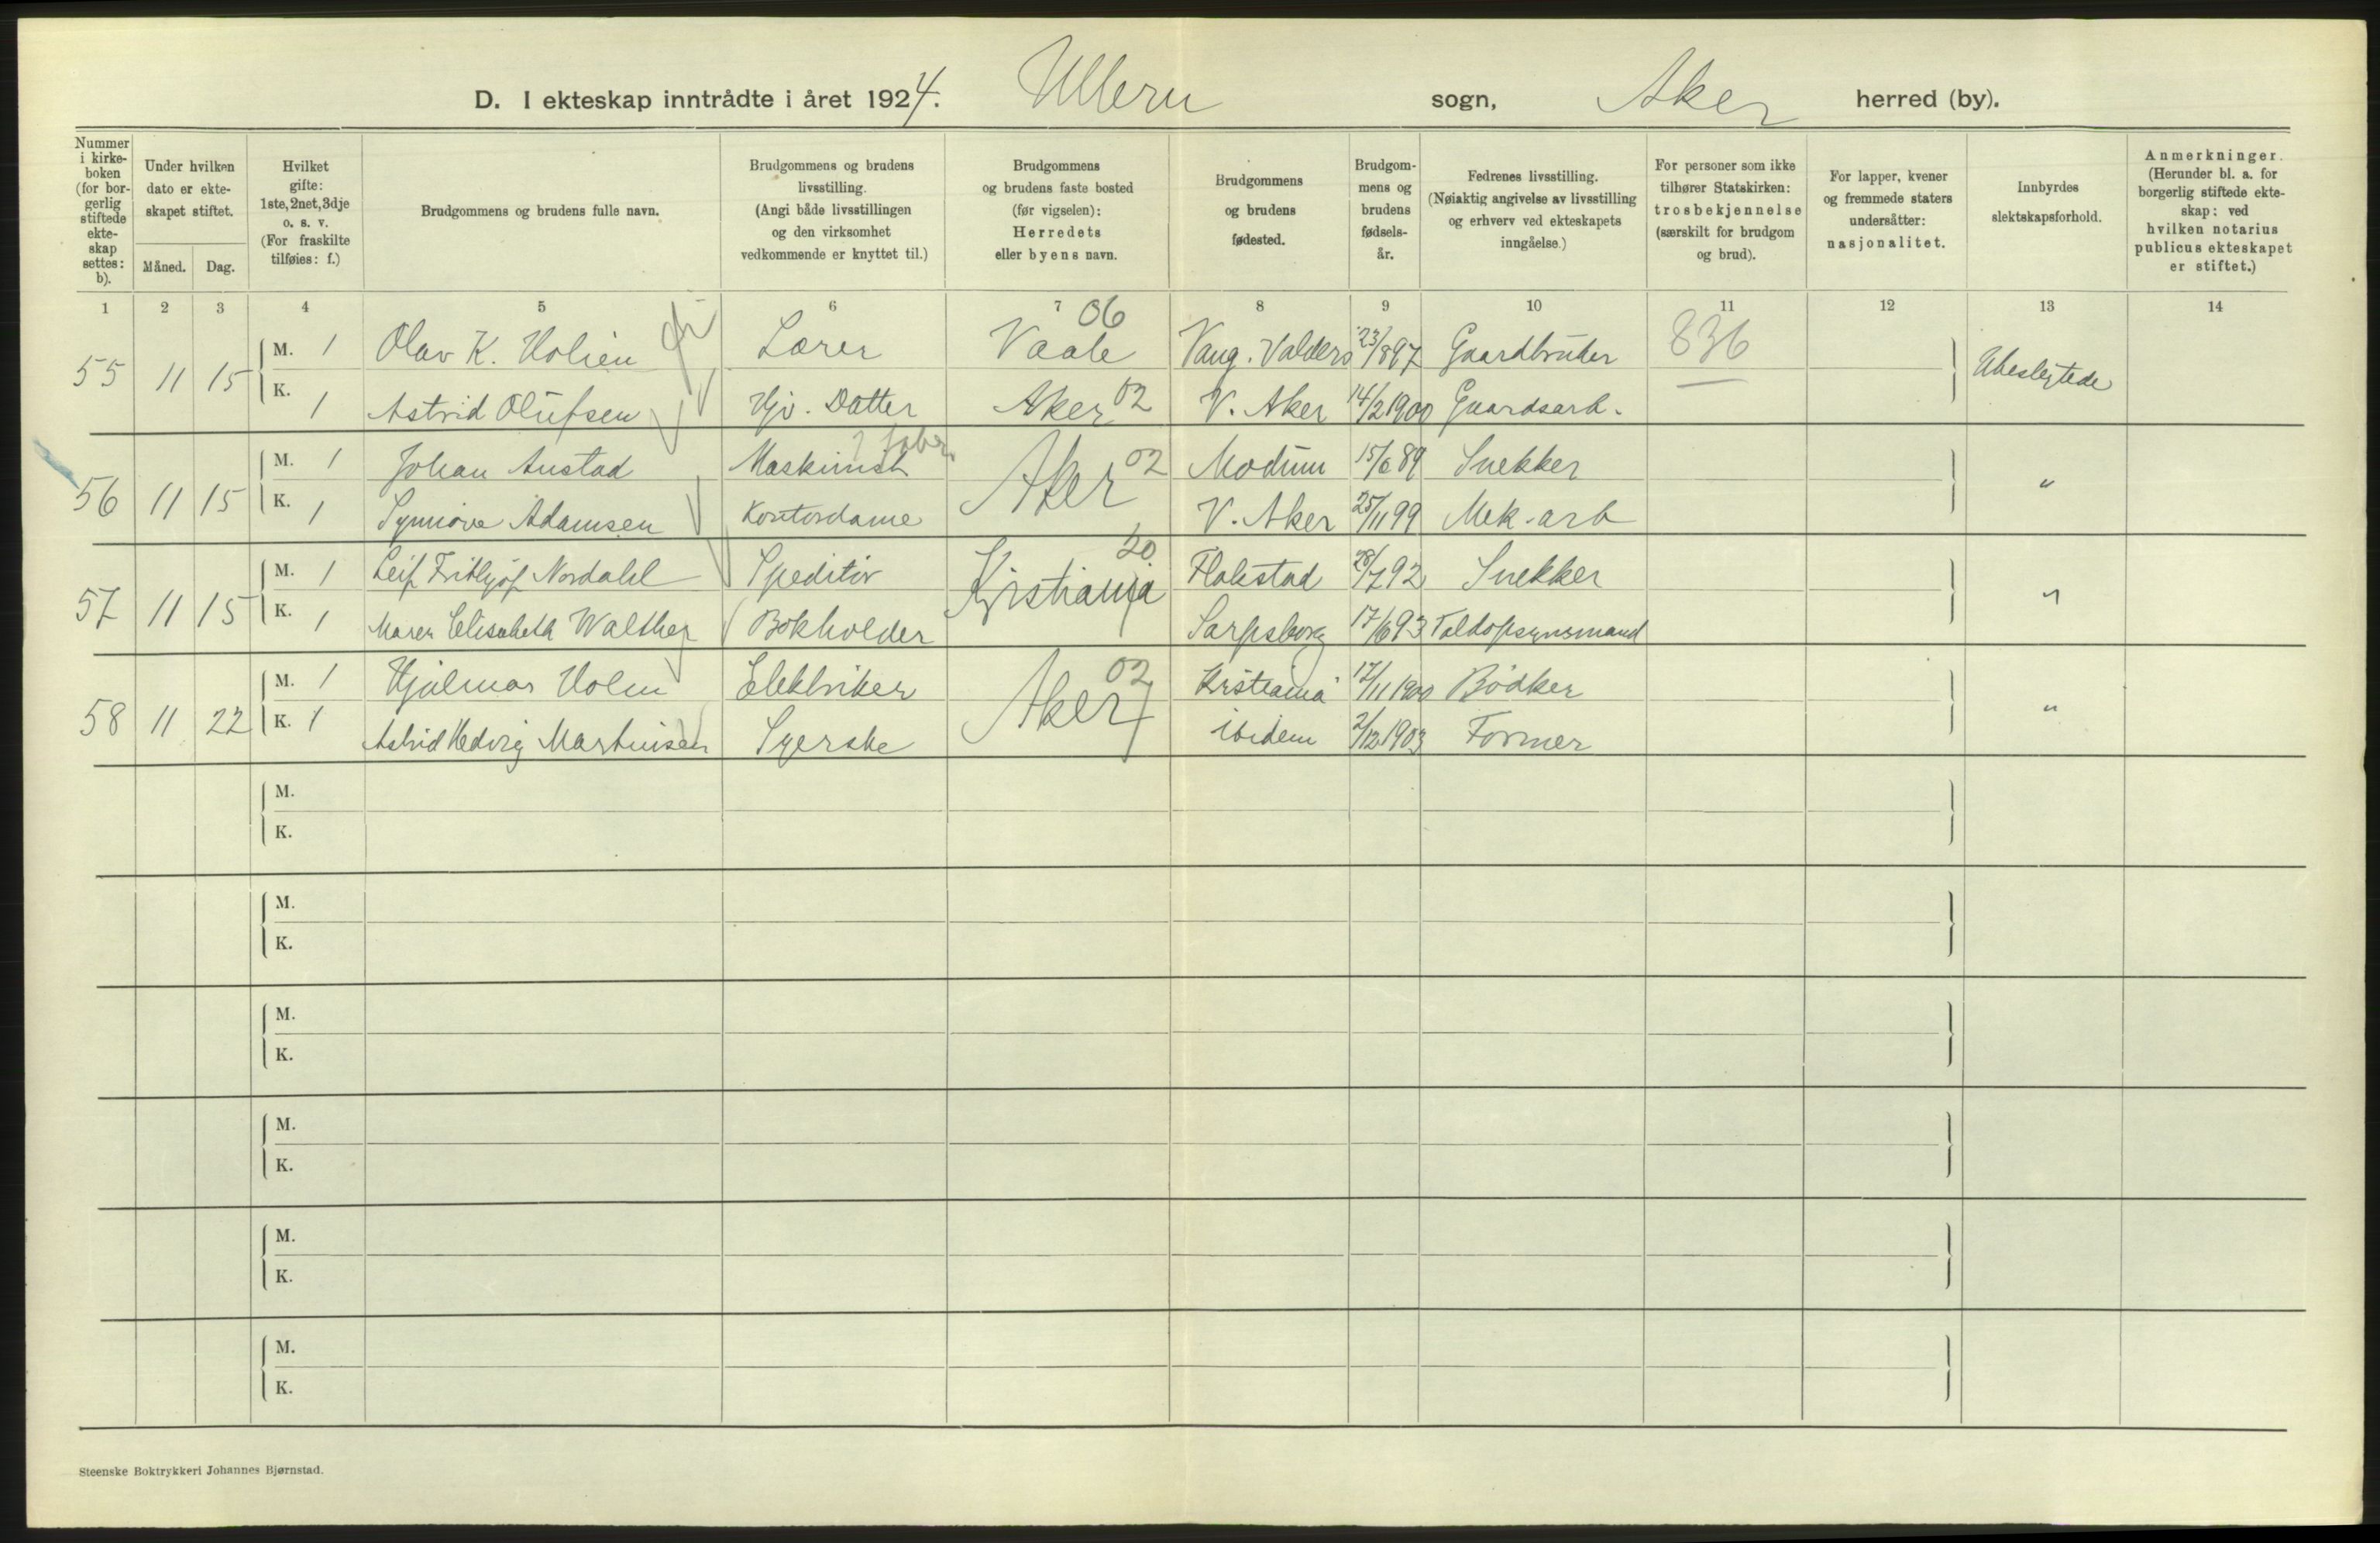 D. I ekteskap inntrådte i året 1924. Ullern sogn, Aker herred (by).
Nummer i kirkeboken (for borgerlig stiftede ekteskap settes: b).
Under hvilken dato er ekteskapet stiftet.
Måned. Dag.
Hvilket gifte: 1ste, 2net, 3dje o. s. v. (For fraskilte tilføies: f.)
Brudgommens og brudens fulle navn.
Brudgommens og brudens livsstilling. (Angi både livsstillingen og den virksomhet vedkommende er knyttet til.)
Brudgommens og brudens faste bosted (før vigselen): Herredets eller byens navn.
Brudgommens og brudens fødested.
Brudgommens og brudens fødselsår.
Fedrenes livsstilling. (Nøiaktig angivelse av livsstilling og erhverv ved ekteskapets inngåelse.)
For personer som ikke tilhører Statskirken: trosbekjennelse (særskilt for brudgom og brud).
For lapper, kvener og fremmede staters undersåtter: nasjonalitet.
Innbyrdes slektskapsforhold.
Anmerkninger. (Herunder bl. a. for borgerlig stiftede ekteskap: ved hvilken notarius publicus ekteskapet er stiftet.)
1 2 3 4 5 6 7 8 9 10 11 12 13 14
55 11 15 M. 1 Olav K. Holien Lærer Vaale 06 Vang. Valders 23/1 897 Gaardbruker 836 Ubeslegtede
K. 1 Astrid Olufsen Hjv. Datter Aker 02 V. Aker 14/2 1900 Gaardsarb.
56 11 15 M. 1 Johan Austad Maskinist Aker 02 Modum 15/6 89 Snekker "
K. 1 Synnøve Adamsen Kontordame V. Aker 25/11 99 Mek. arb
57 11 15 M. 1 Leif Frithjof Nordahl Speditør Kristiania 20 Flakstad 28/7 92 Snekker "
K. 1 Maren Elisabeth Walther Bokholder Sarpsborg 17/6 93 Toldopsynsmand
58 11 22 M. 1 Hjalmar Holm Elektriker Aker 02 Kristiania 17/11 1900 Bødker "
K. 1 Astrid Hedvig Martinisen Syerske ibidem 2/12 1903 Former
M.
K.
M.
K.
M.
K.
M.
K.
M.
K.
M.
K.
Steenske Boktrykkeri Johannes Bjørnstad.